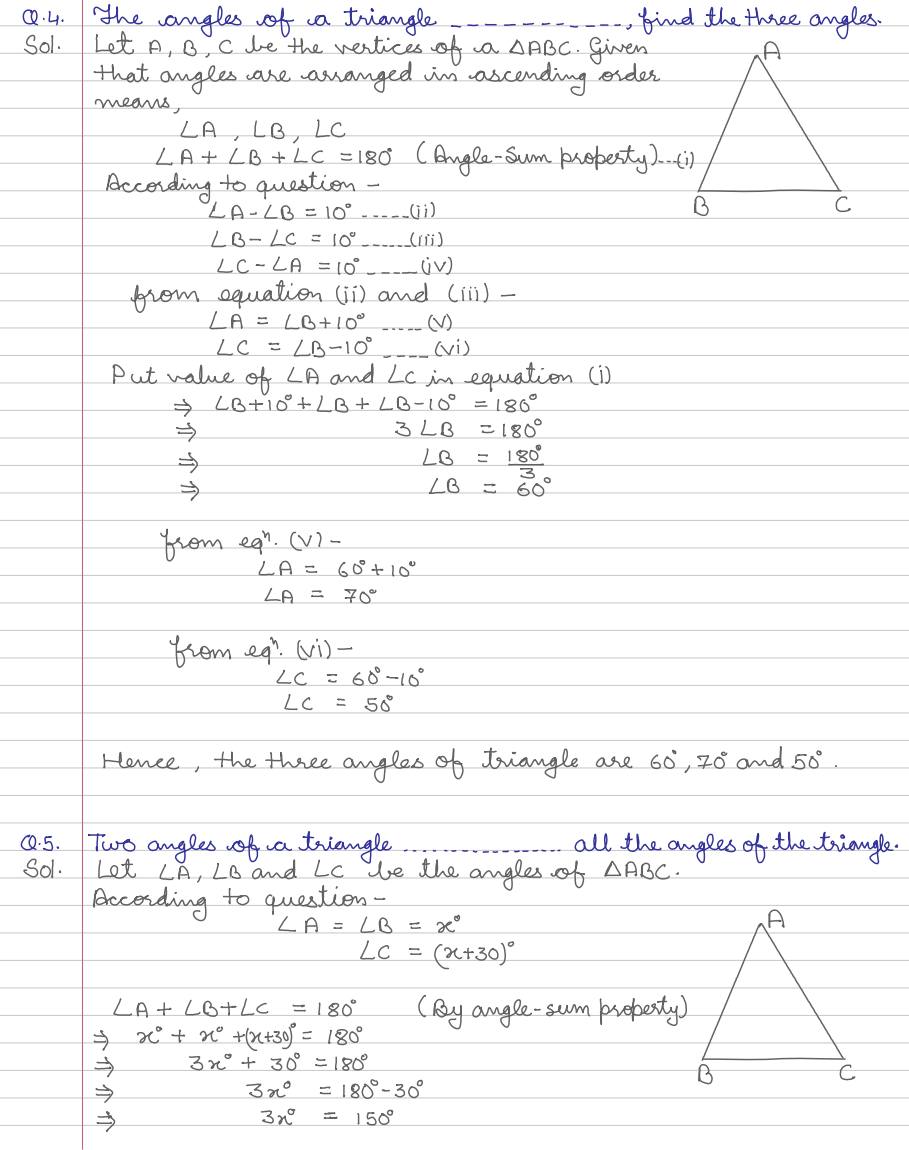 Q.4. The angles of a triangle ------------, find the three angles.
Sol. Let A, B, C be the vertices of a ΔABC. Given
that angles are arranged in ascending order
means,
∠A, ∠B, ∠C
∠A + ∠B + ∠C = 180° (Angle-Sum property)...(i)
According to question -
∠A - ∠B = 10° -----(ii)
∠B - ∠C = 10° -----(iii)
∠C - ∠A = 10° -----(iv)
from equation (ii) and (iii) -
∠A = ∠B + 10° -----(v)
∠C = ∠B - 10° ----(vi)
Put value of ∠A and ∠C in equation (i)
⇒ ∠B + 10° + ∠B + ∠B - 10° = 180°
⇒ 3∠B = 180°
⇒ ∠B = 180°/3
⇒ ∠B = 60°
from eqⁿ. (v) -
∠A = 60° + 10°
∠A = 70°
from eqⁿ. (vi) -
∠C = 60° - 10°
∠C = 50°
Hence, the three angles of triangle are 60°, 70° and 50°.
A
B C
Q.5. Two angles of a triangle ................ all the angles of the triangle.
Sol. Let ∠A, ∠B and ∠C be the angles of ΔABC.
According to question -
∠A = ∠B = x°
∠C = (x+30)°
∠A + ∠B + ∠C = 180° (By angle-sum property)
⇒ x° + x° + (x+30)° = 180°
⇒ 3x° + 30° = 180°
⇒ 3x° = 180° - 30°
⇒ 3x° = 150°
A
B C